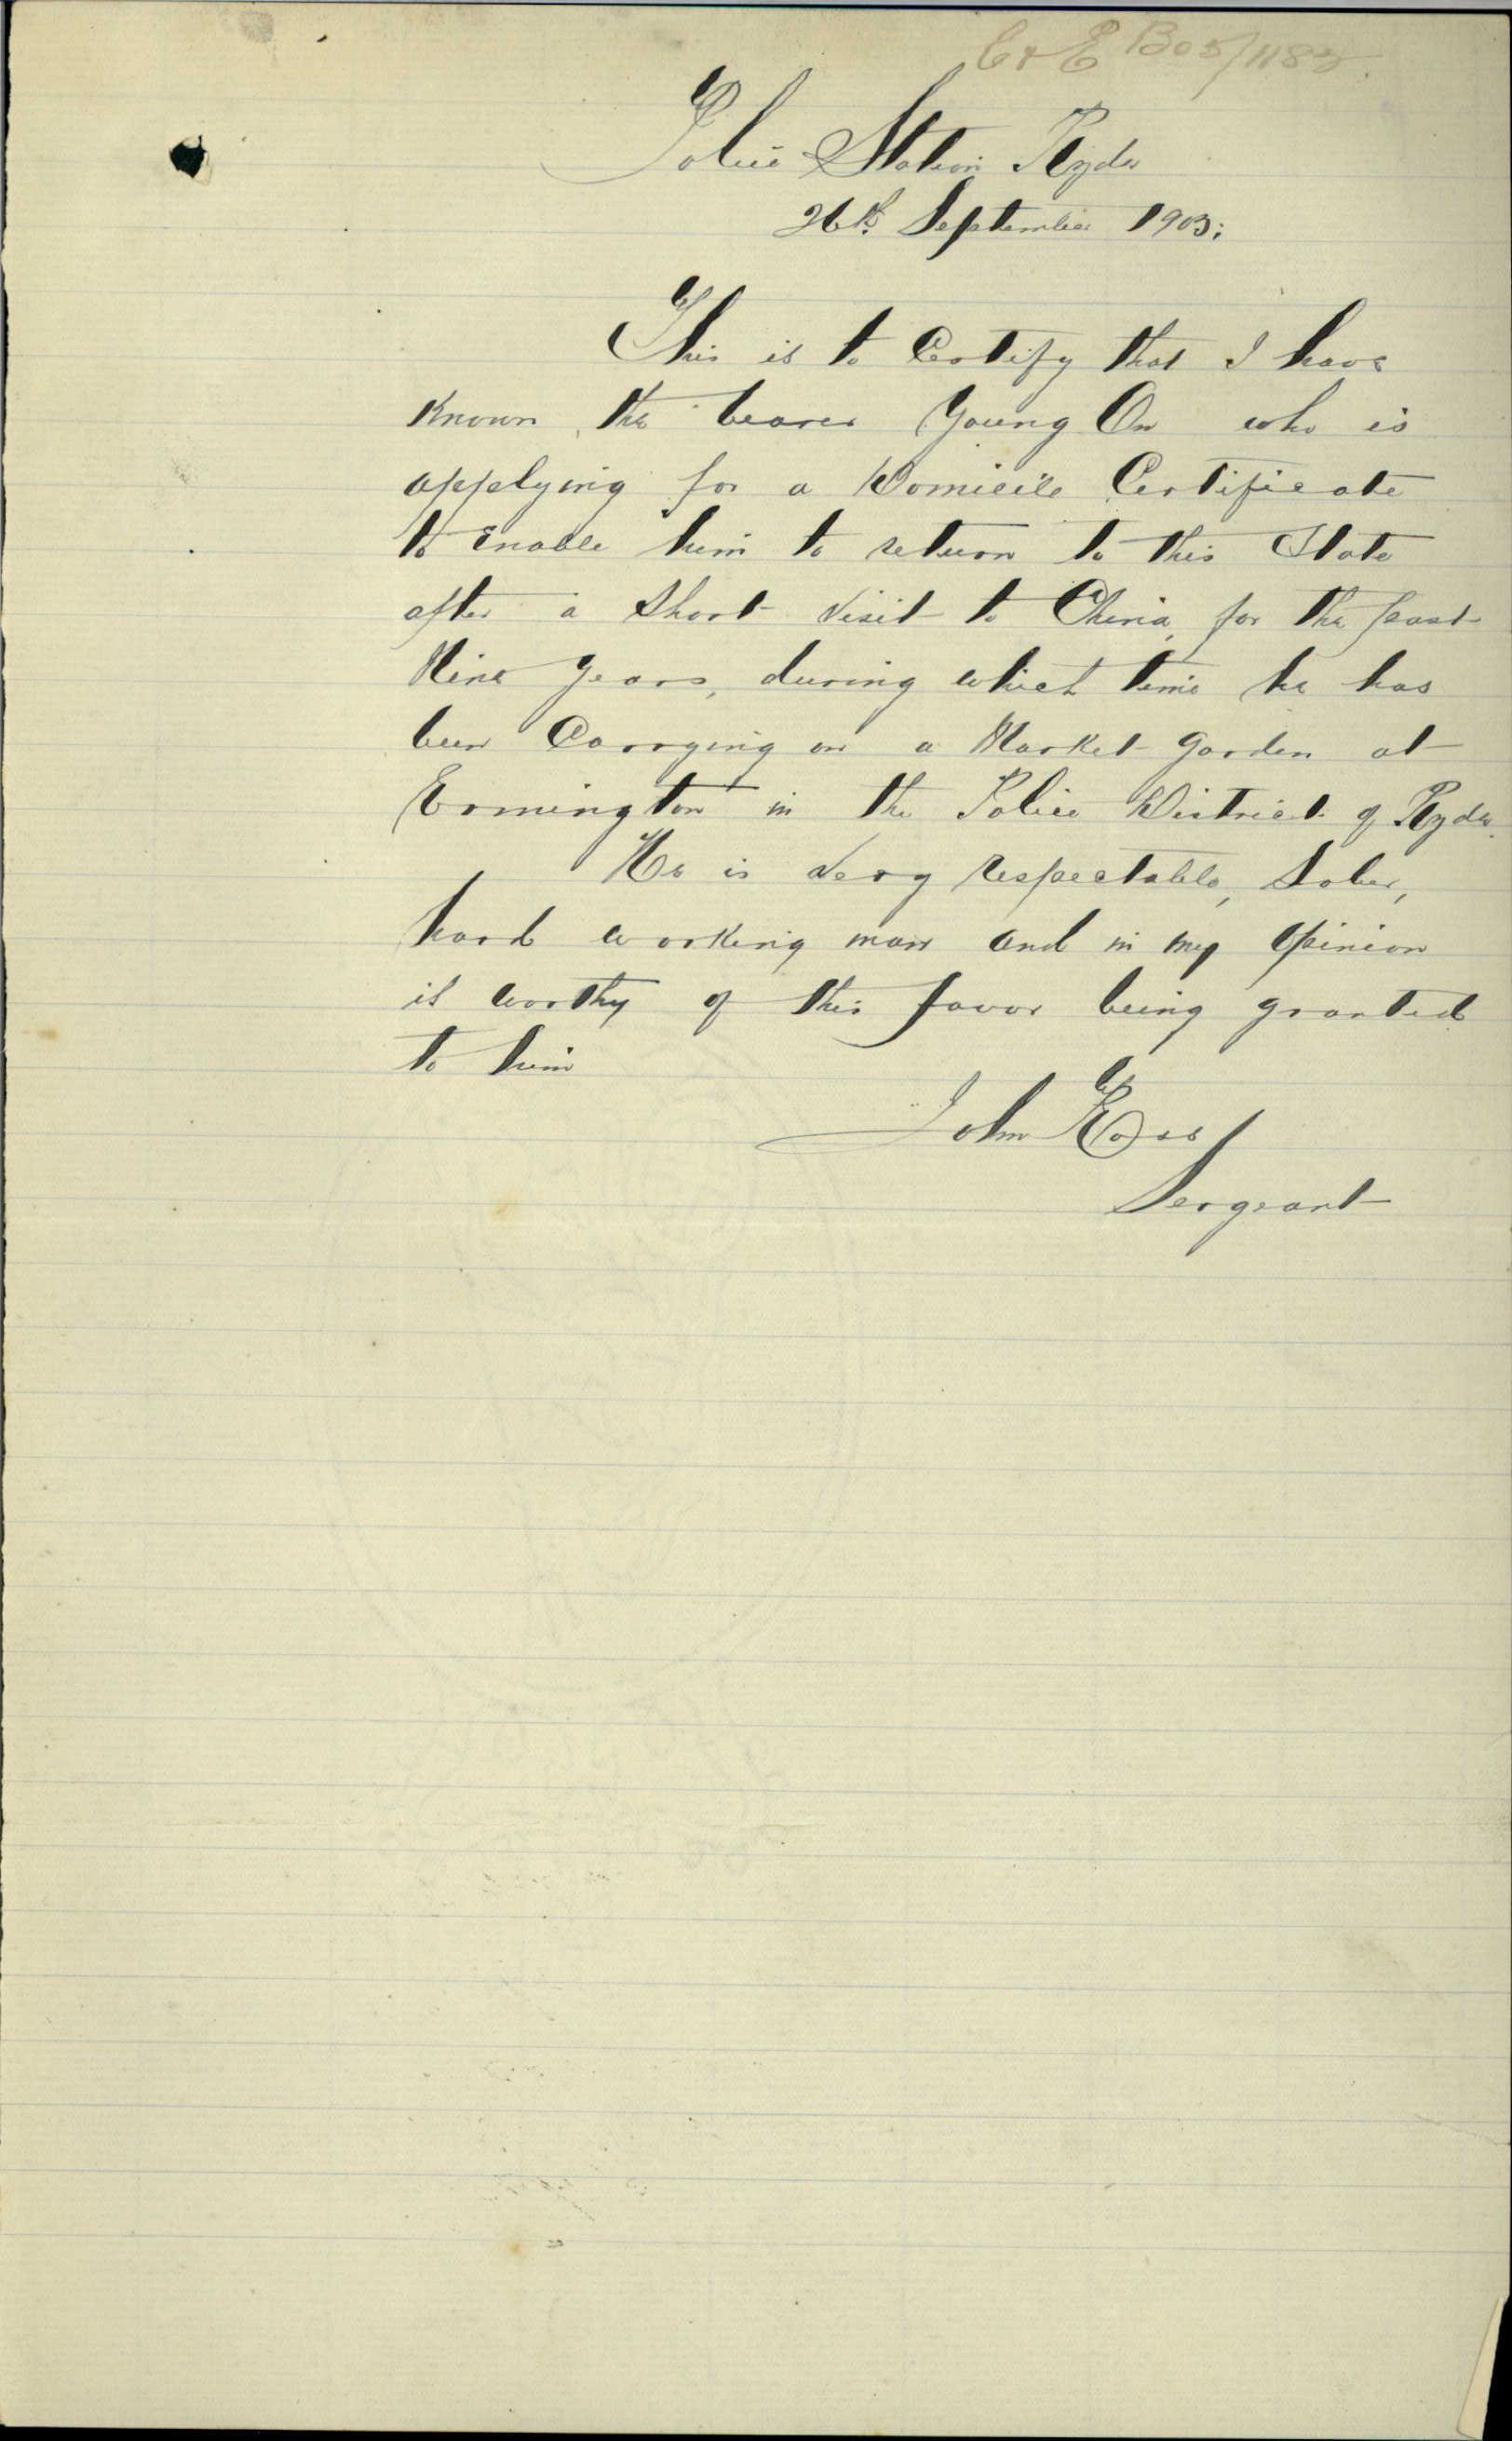 C & E B03/1183.
Police Station Ryde
26th September 1903;
This is to Certify that I have
known the bearer Young On who is
applying for a Domicile Certificate
to enable him to return to this State
after a Short visit to China, for the past
Nine years, during which time he has
been Carrying on a Market Garden at
Ermington in the Police District of Ryde.
He is very respectable, Sober,
hard working man and in my opinion
is worthy of this favor being granted
to him
John Ross
Sergeant